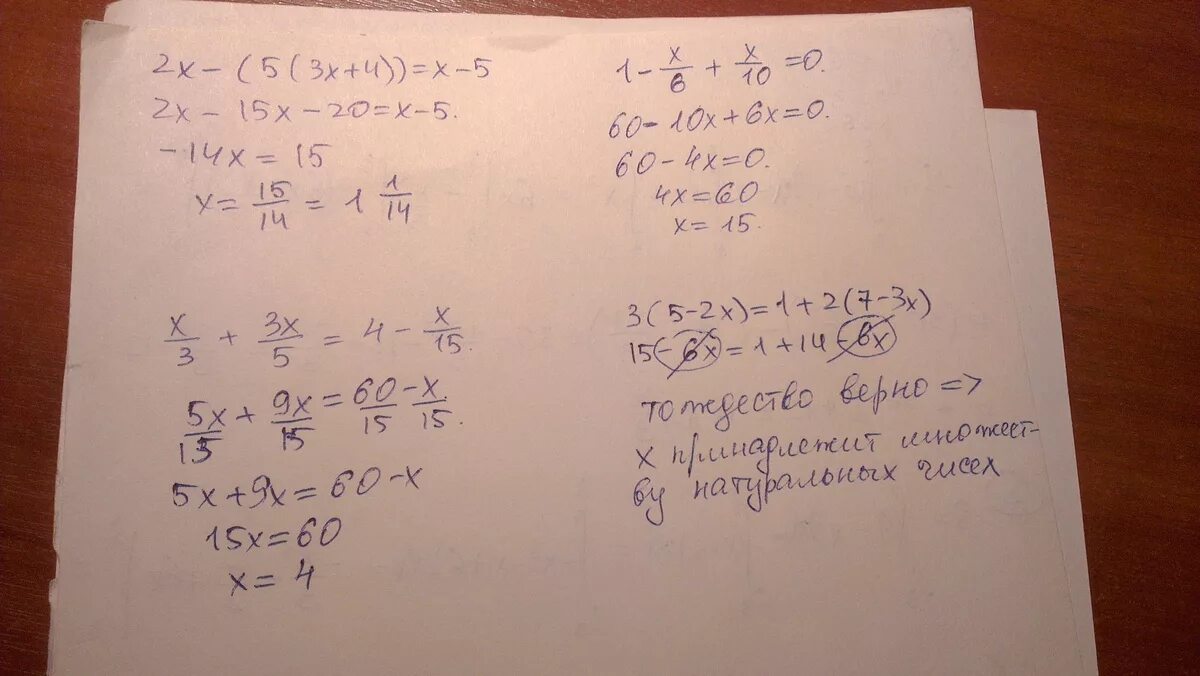 2x - (5(3x+4)) = x-5
2x - 15x - 20 = x-5.
-14x = 15
x = 15/14 = 1 1/14
1 - x/6 + x/10 = 0.
60 - 10x + 6x = 0.
60 - 4x = 0.
4x = 60
x = 15.
x/3 + 3x/5 = 4 - x/15.
5x/15 + 9x/15 = 60/15 - x/15.
5x + 9x = 60 - x
15x = 60
x = 4
3(5-2x) = 1 + 2(7-3x)
15 - 6x = 1 + 14 - 6x
тождество верно =>
x принадлежит множест-
ву натуральных чисел